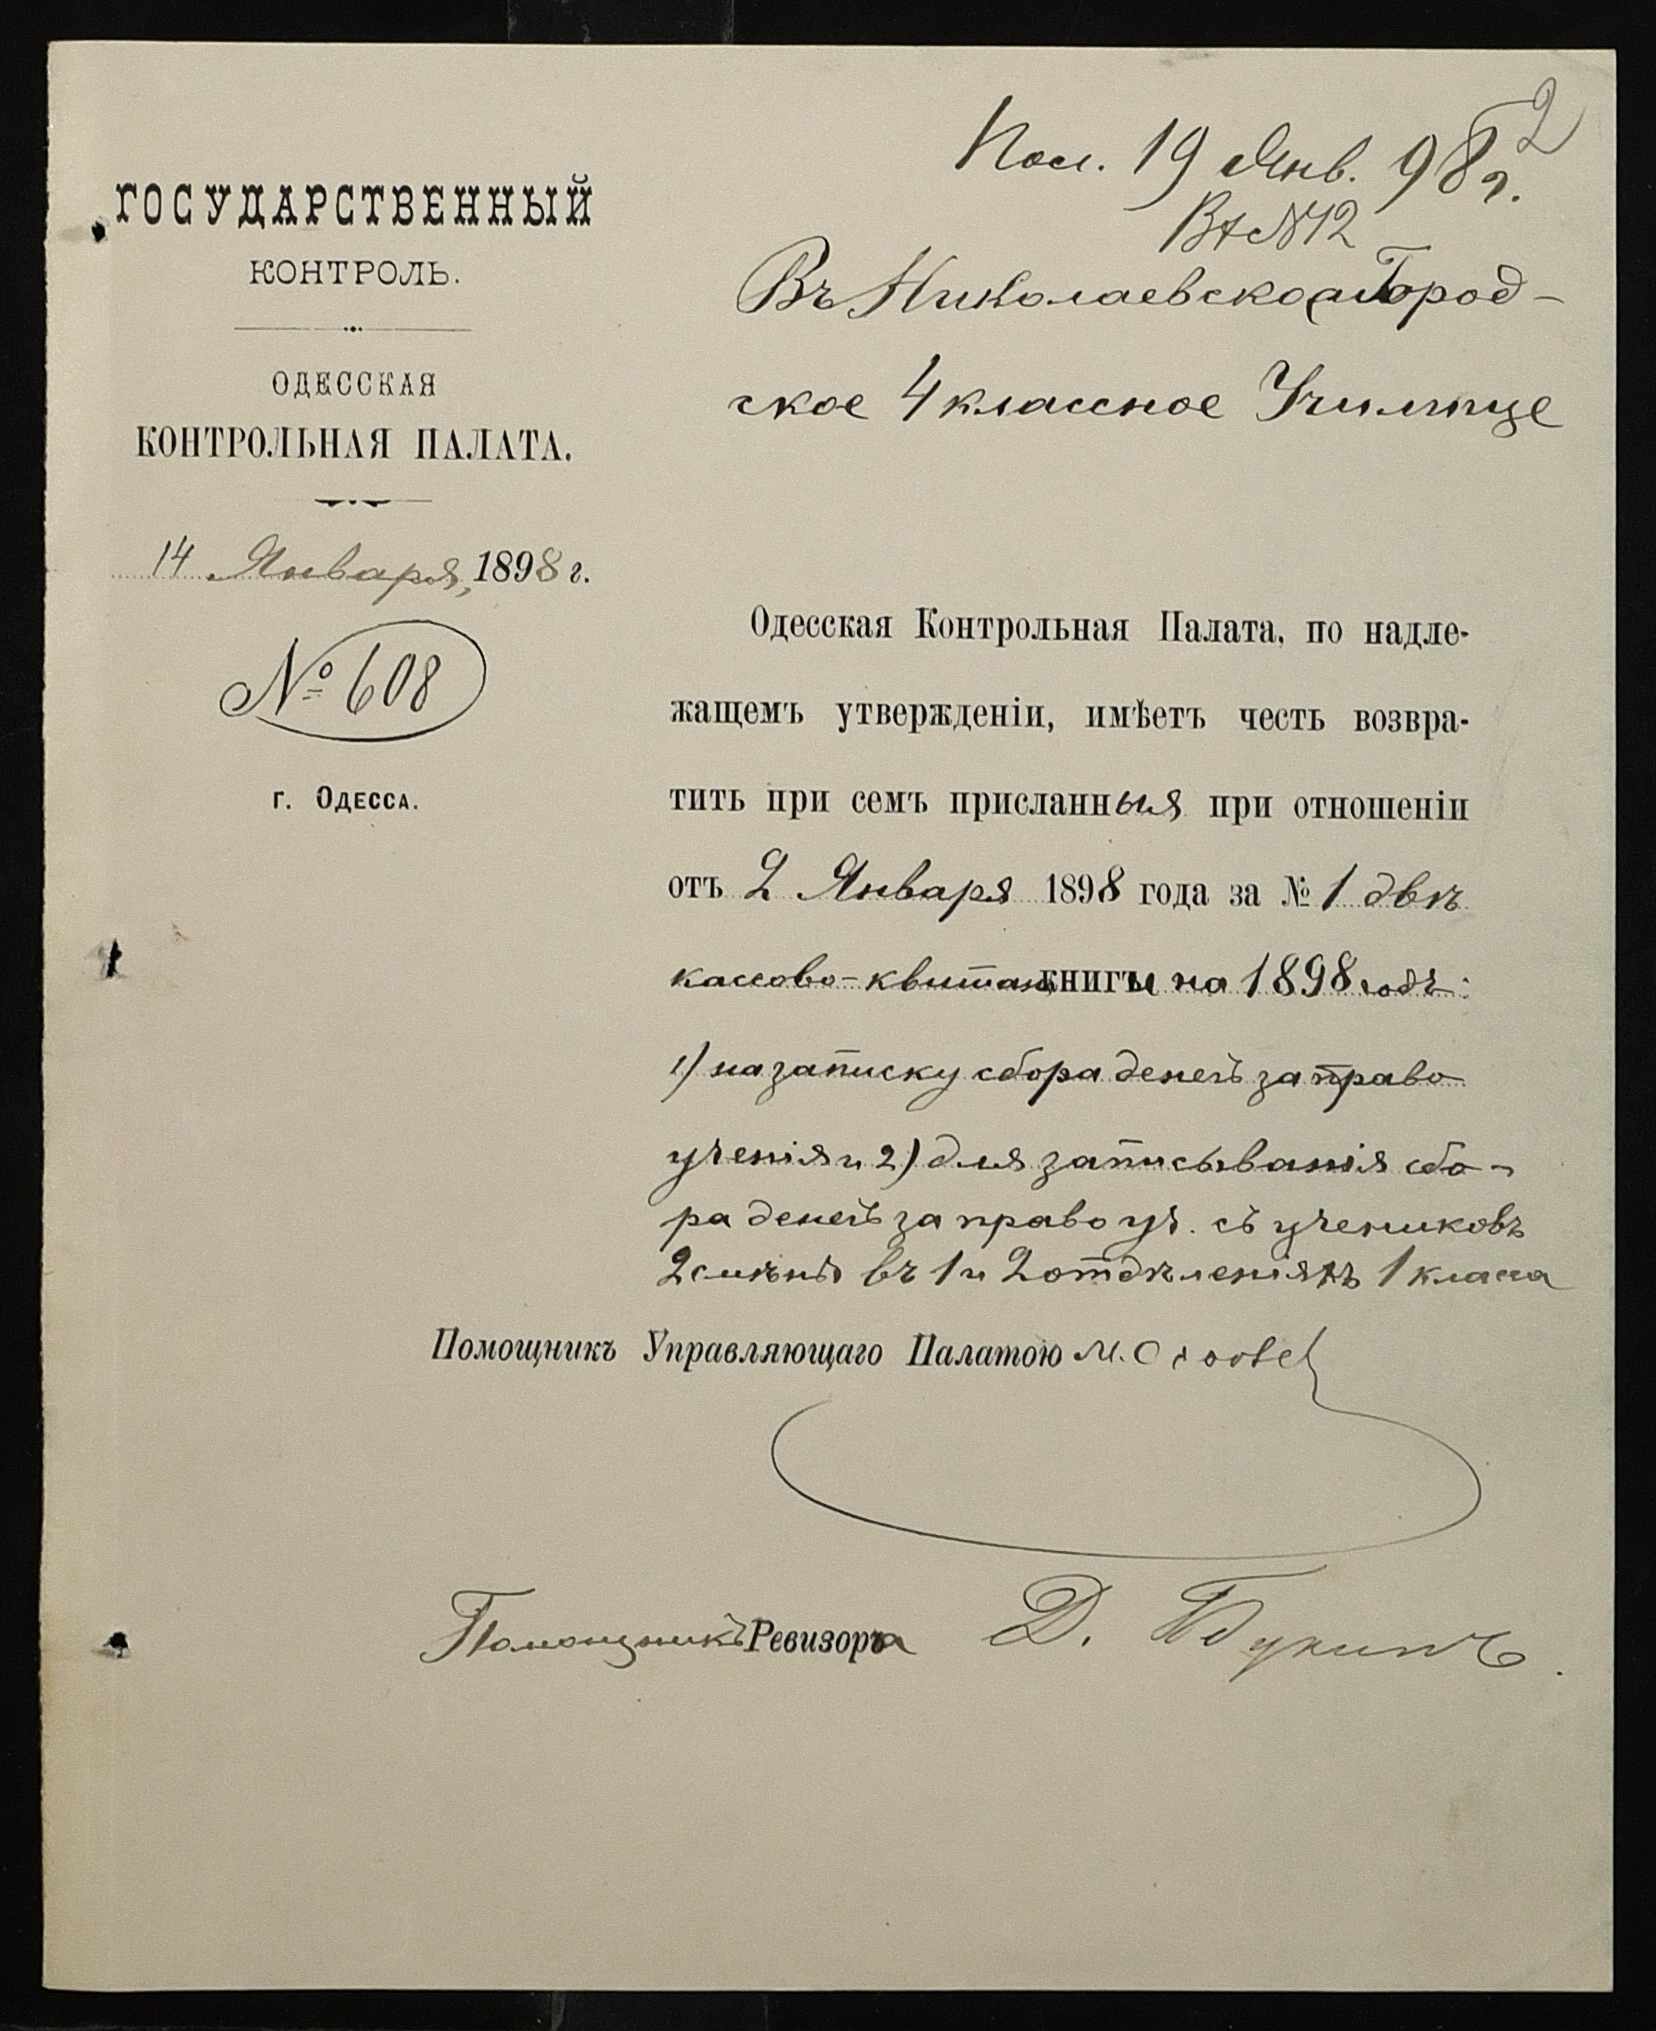 2
Пол. 19 Янв. 98 г.
Вх №12
ГОСУДАРСТВЕННЫЙ
КОНТРОЛЬ.
ОДЕССКАЯ
КОНТРОЛЬНАЯ ПАЛАТА.
14 Января, 1898 г.
№ 608
г. Одесса.
Въ Николаевское Город-
ское 4 классное Училище
Одесская Контрольная Палата, по надле-
жащемъ утвержденіи, имѣетъ честь возвра-
тить при семъ присланныя при отношеніи
отъ 2 Января 1898 года за № 1 двѣ
кассово-квитан книги на 1898 годъ:
1) на записку сбора денегъ за право
ученія и 2) для записыванія сбо-
ра денегъ за право уч. съ учениковъ
2 смѣны въ 1 и 2 отдѣленіяхъ 1 класса
Помощникъ Управляющаго Палатою М.
Помощникъ Ревизора Д.